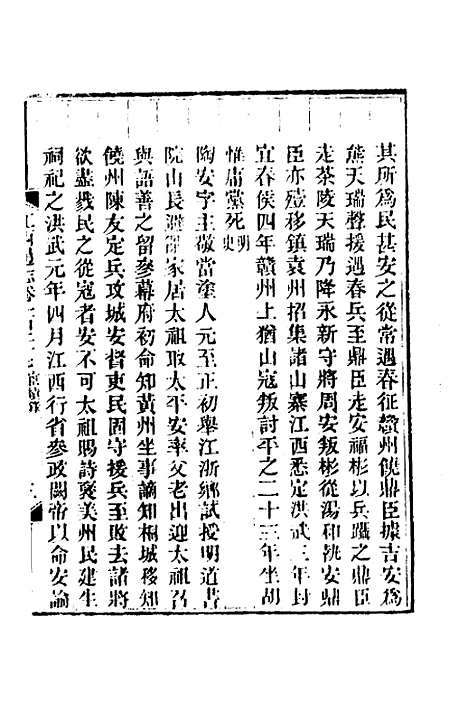 其所爲民甚安之從常遇春征贛州饒鼎臣據吉安爲
熊天瑞聲援遇春兵至鼎臣走安福彬以兵躡之鼎臣
走茶陵天瑞乃降永新守將周安叛彬從湯和執安鼎
臣亦殪移鎮袁州招集諸山寨江西悉定洪武三年封
宜春侯四年贛州上猶山寇叛討平之二十三年坐胡
惟庸黨死明史
陶安字主敬當塗人元至正初舉江浙鄉試授明道書
院山長避亂家居太祖取太平安率父老出迎太祖召
與語善之留參幕府初命知黃州坐事謫知桐城移知
饒州陳友定兵攻城安督吏民固守援兵至敗去諸將
欲盡戮民之從寇者安不可太祖賜詩褒美州民建生
祠祀之洪武元年四月江西行省參政闕帝以命安諭
江西通志卷一百二十七 宦績錄